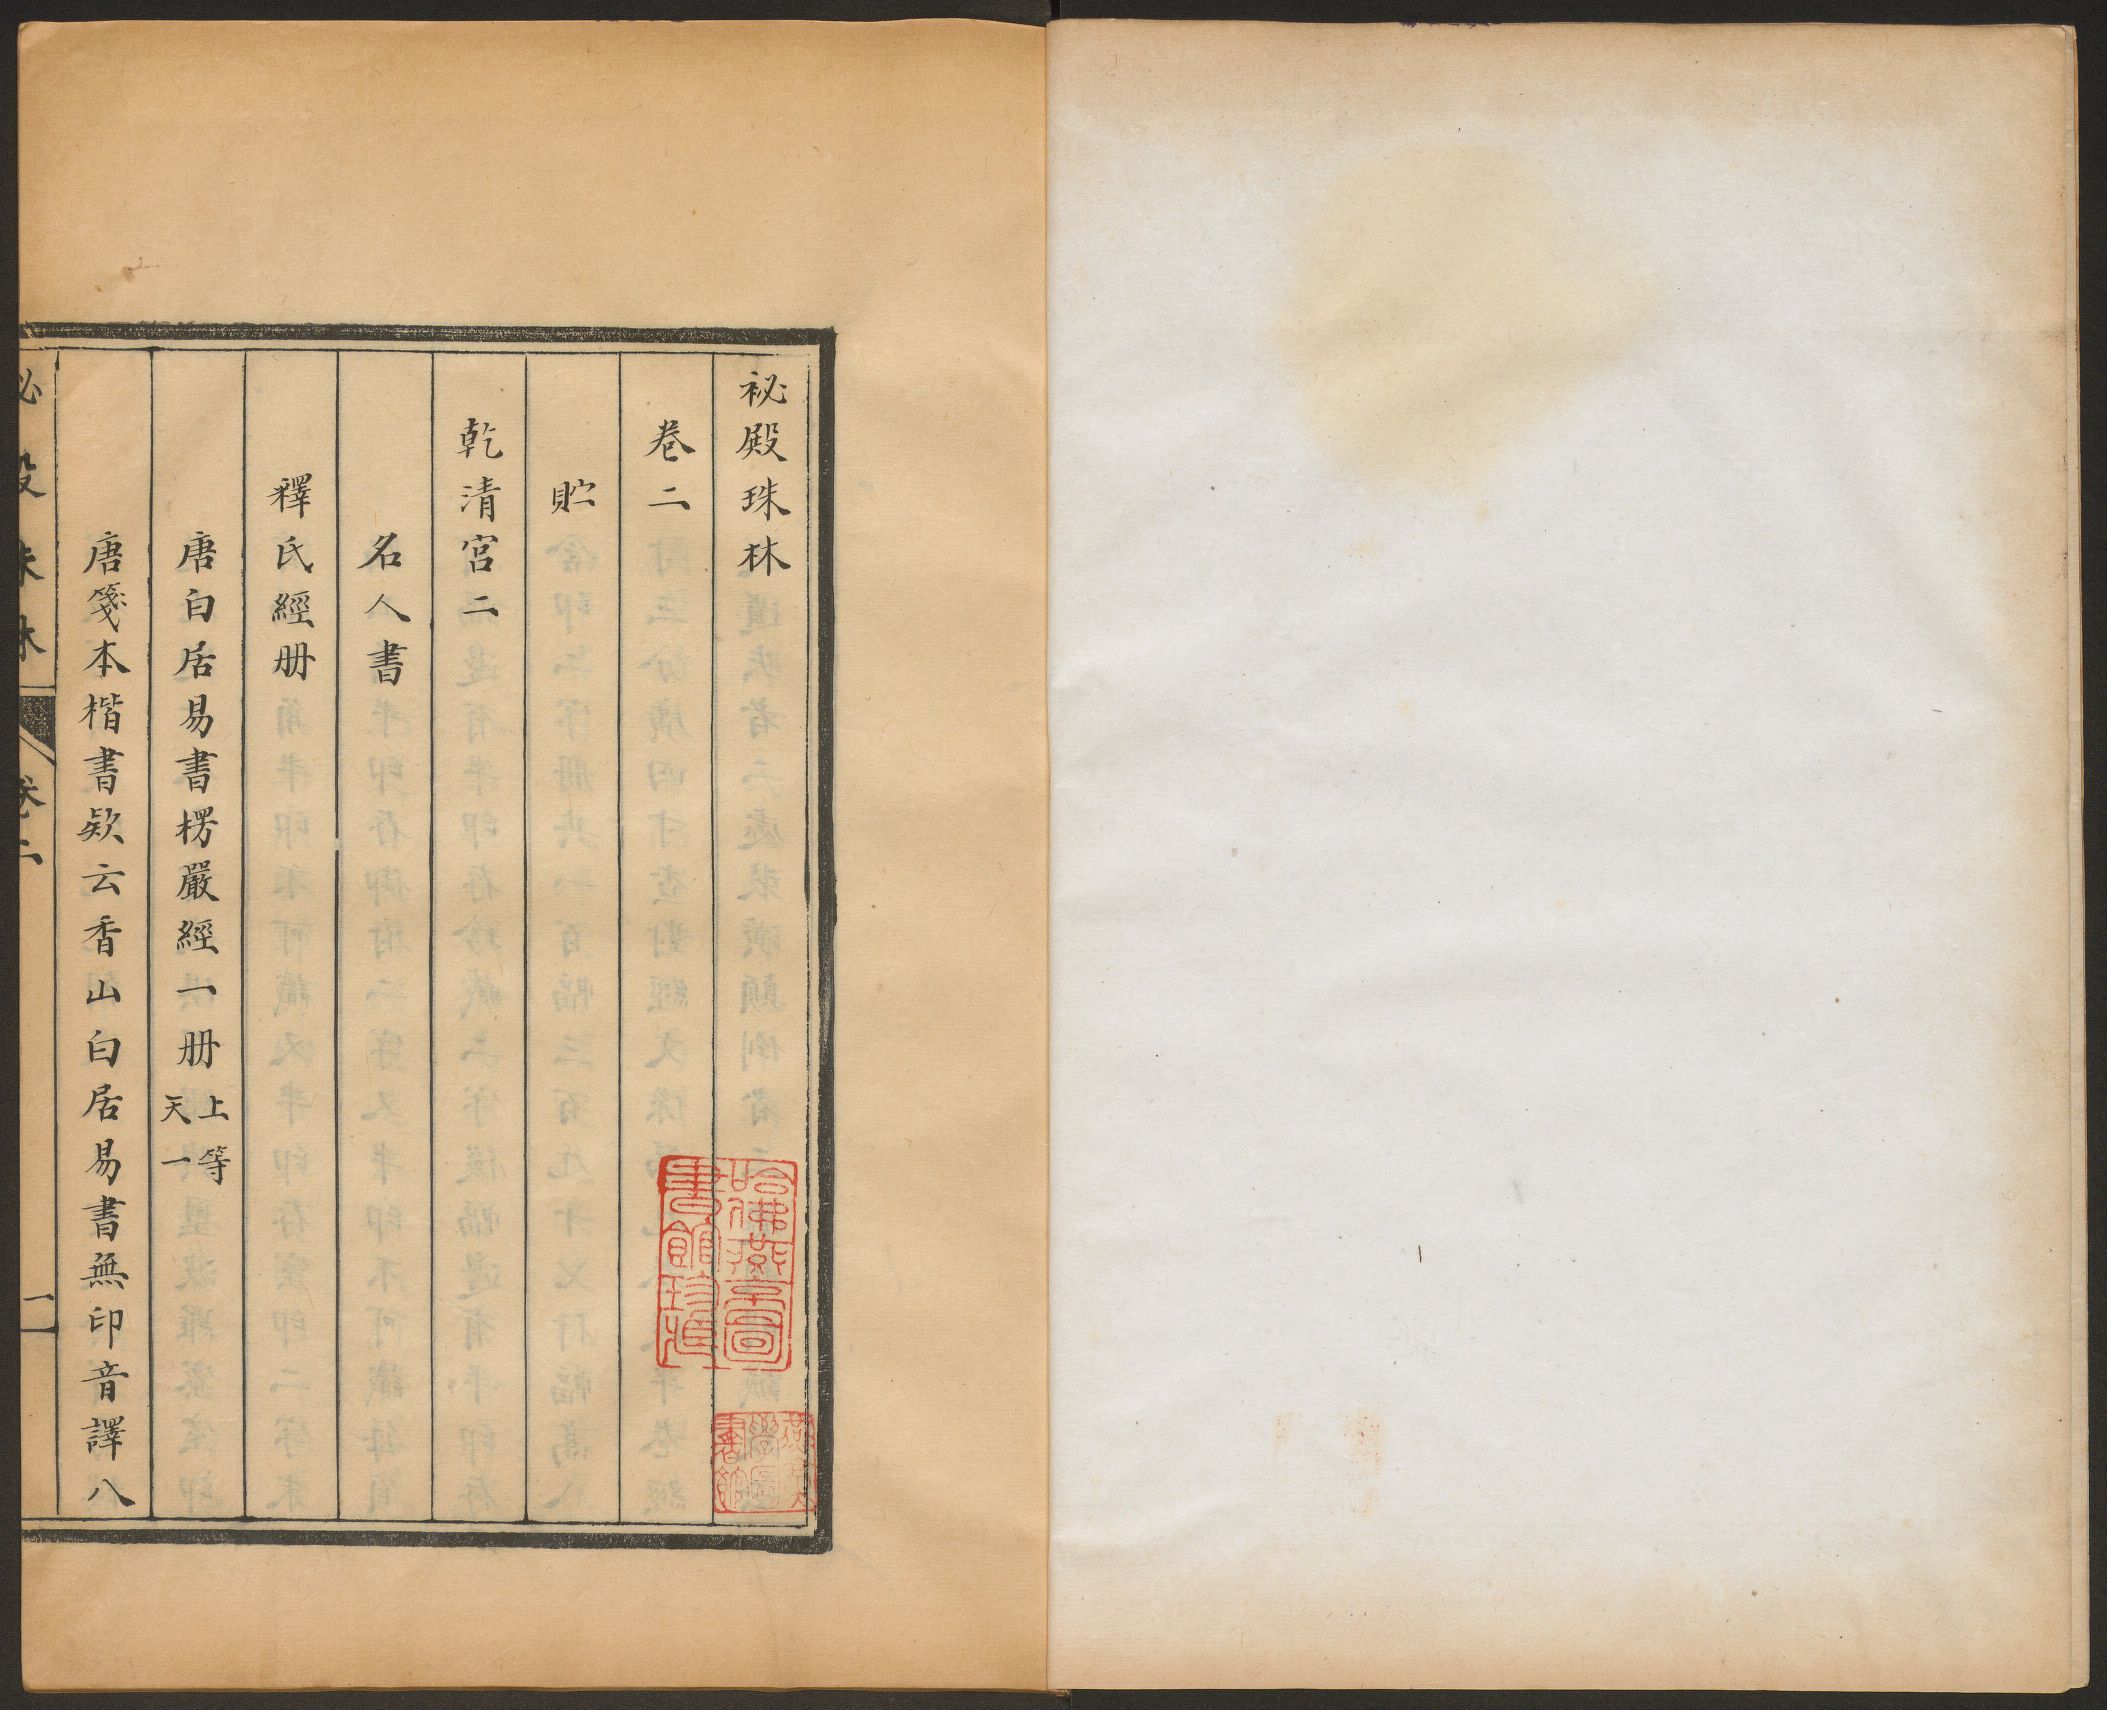 祕殿珠林
卷二
貯
乾清宮二
名人書
釋氏經册
唐白居易書楞嚴經一册 上等 天一
唐箋本楷書欵云香山白居易書無印音譯八
祕殿珠林 卷二 一
哈佛燕京圖書館珍藏